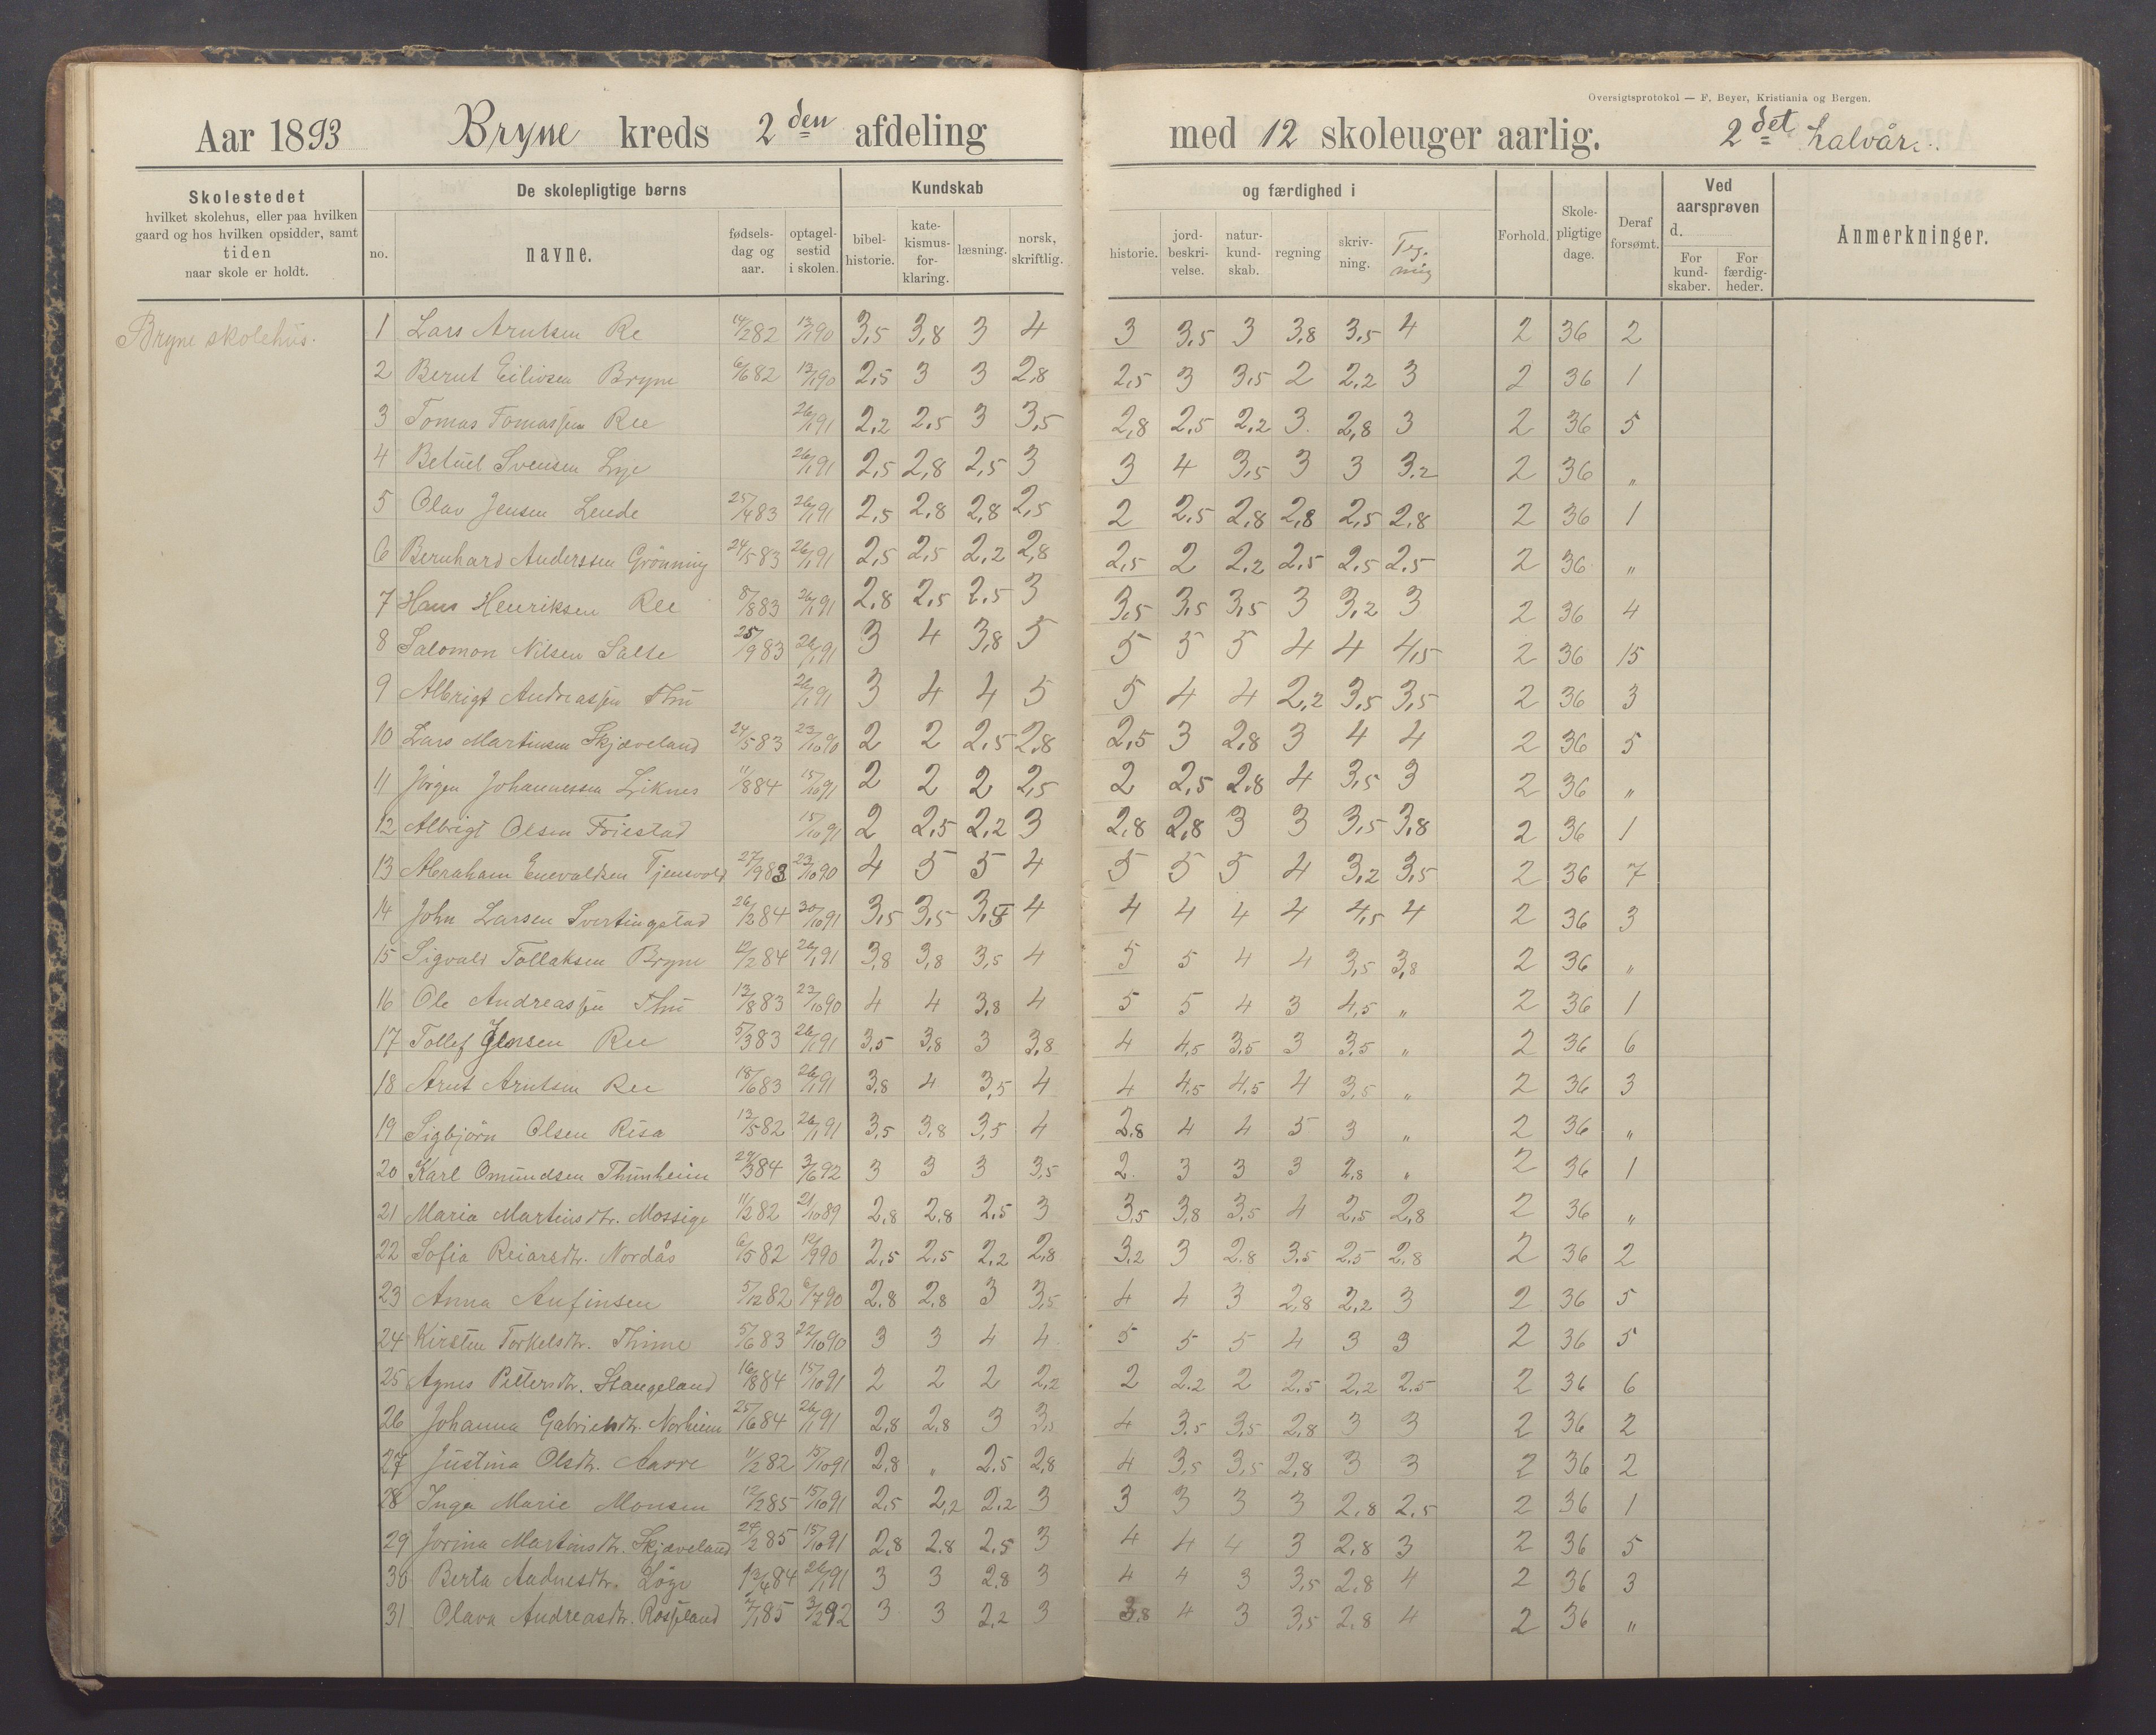 Oversigtsprotokol — F. Beyer, Kristiania og Bergen.
Aar 1893 Bryne kreds 2den afdeling med 12 skoleuger aarlig. 2det halvår.
Skolestedet
hvilket skolehus, eller paa hvilken
gaard og hos hvilken opsidder, samt
tiden
naar skole er holdt.
De skolepligtige børns
no. navne. fødsels-dag og aar. optagel-sestid i skolen.
Kundskab og færdighed i
bibel-historie. kate-kismus-for-klaring. læsning. norsk, skriftlig. historie. jord-beskri-velse. natur-kund-skab. regning skriv-ning. Teg-ning
Forhold. Skole-pligtige dage. Deraf forsømt.
Ved aarsprøven d.
For kund-skaber. For færdig-heder.
Anmerkninger.
Bryne skolehus.
1 Lars Arntsen Re 14/2 82 13/1 90 3,5 3,8 3 4 3 3,5 3 3,8 3,5 4 2 36 2
2 Bernt Eilivsen Bryne 6/6 82 13/1 90 2,5 3 3 2,8 2,5 3 3,5 2 2,2 3 2 36 1
3 Tomas Tomassen Ree 26/1 91 2,2 2,5 3 3,5 2,8 2,5 2,2 3 2,8 3 2 36 5
4 Betuel Svensen Lye 26/1 91 2,5 2,8 2,5 3 3 4 3,5 3 3 3,2 2 36 "
5 Olav Jensen Lende 25/4 83 26/1 91 2,5 2,8 2,8 2,5 2 2,5 2,8 2,8 2,5 2,8 2 36 1
6 Bernhard Anderssen Grönning 24/5 83 26/1 91 2,5 2,5 2,2 2,8 2,5 2 2,2 2,5 2,5 2,5 2 36 "
7 Hans Henriksen Ree 8/8 83 26/1 91 2,8 2,5 2,5 3 3,5 3,5 3,5 3 3,2 3 2 36 4
8 Salomon Nilsen Salte 25/9 83 26/1 91 3 4 3,8 5 5 5 5 4 4 4,5 2 36 15
9 Albrigt Andreassen Thu 26/1 91 3 4 4 5 5 4 4 2,2 3,5 3,5 2 36 3
10 Lars Martinsen Skjæveland 24/5 83 23/10 90 2 2 2,5 2,8 2,5 3 2,8 3 4 4 2 36 5
11 Jörgen Johannessen Liknes 11/8 84 15/10 91 2 2 2 2,5 2 2,5 2,8 4 3,5 3 2 36 "
12 Albrigt Olsen Frøiestad 15/10 91 2 2,5 2,2 3 2,8 2,8 3 3 3,5 3,8 2 36 1
13 Abraham Enevaldsen Tjensvold 27/9 83 23/10 90 4 5 5 4 5 5 5 4 3,2 3,5 2 36 7
14 John Larsen Svertingstad 26/2 84 30/10 91 3,5 3,5 4 4 4 4 4 4,5 4 2 36 3
15 Sigvald Tollaksen Bryne 12/2 84 26/1 91 3,8 3,8 3,5 4 5 5 4 4 3,5 3,8 2 36 "
16 Ole Andreassen Thu 13/8 83 23/10 90 4 4 3,8 4 5 5 4 3 4,5 " 2 36 1
17 Tollef Jensen Ree 5/3 83 26/1 91 3,5 3,8 3 3,8 4 4,5 3,5 3 3,5 " 2 36 6
18 Arnt Arntsen Ree 18/6 83 26/1 91 3,8 4 3,5 4 4 4,5 4,5 4 3,5 " 2 36 3
19 Sigbjörn Olsen Risa 13/5 82 26/1 91 3,5 3,8 3,5 4 2,8 4 4 5 3 " 2 36 "
20 Karl Omundsen Thunheim 29/3 84 3/6 92 3 3 3 3,5 2 3 3 3 2,8 " 2 36 1
21 Maria Martinsdtr. Mossige 11/2 82 21/10 89 2,8 2,8 2,5 3 3,5 3,8 3,5 4 2,5 2,8 2 36 "
22 Sofia Reiarsdtr. Nordås 6/5 82 12/9 90 2,5 2,5 2,2 2,8 3,2 3 2,8 3,5 2,5 2,8 2 36 2
23 Anna Aufinsen 5/12 82 6/7 90 2,8 2,8 3 3,5 4 4 3 2,8 2,2 3 2 36 5
24 Kirsten Torkelsdtr. Thime 5/6 83 22/10 90 3 3 4 4 5 5 5 4 3 3 2 36 5
25 Agnes Pettersdtr. Stangeland 16/8 84 15/10 91 2 2 2 2,2 2 2,2 2 2,5 2,2 2,5 2 36 6
26 Johanna Gabrielsdtr. Norheim 25/6 84 26/1 91 2,8 2,8 3 3,5 4 3,5 3,5 2,8 3 3 2 36 2
27 Justina Olsdtr. Aarre 11/2 82 15/10 91 2,8 " 2,5 2,8 4 3,5 3,5 2,8 3 3 2 36 2
28 Inga Marie Monsen 12/2 85 15/10 91 2,5 2,2 2,2 3 3 3 3 3 2,8 2,5 2 36 1
29 Jorina Martinsdtr. Skjæveland 24/2 85 15/10 91 2,8 2,8 2,5 3 4 4 4 3 2,8 3 2 36 5
30 Berta Aadnesdtr. Löge 13/4 84 26/1 91 3 3 2,8 3 4 4 3 3,5 2,8 4 2 36 3
31 Olava Andreasdtr. Rosseland 7/1 85 3/2 92 3 3 2,2 3 3,8 4 3 3,5 2,8 4 2 36 "